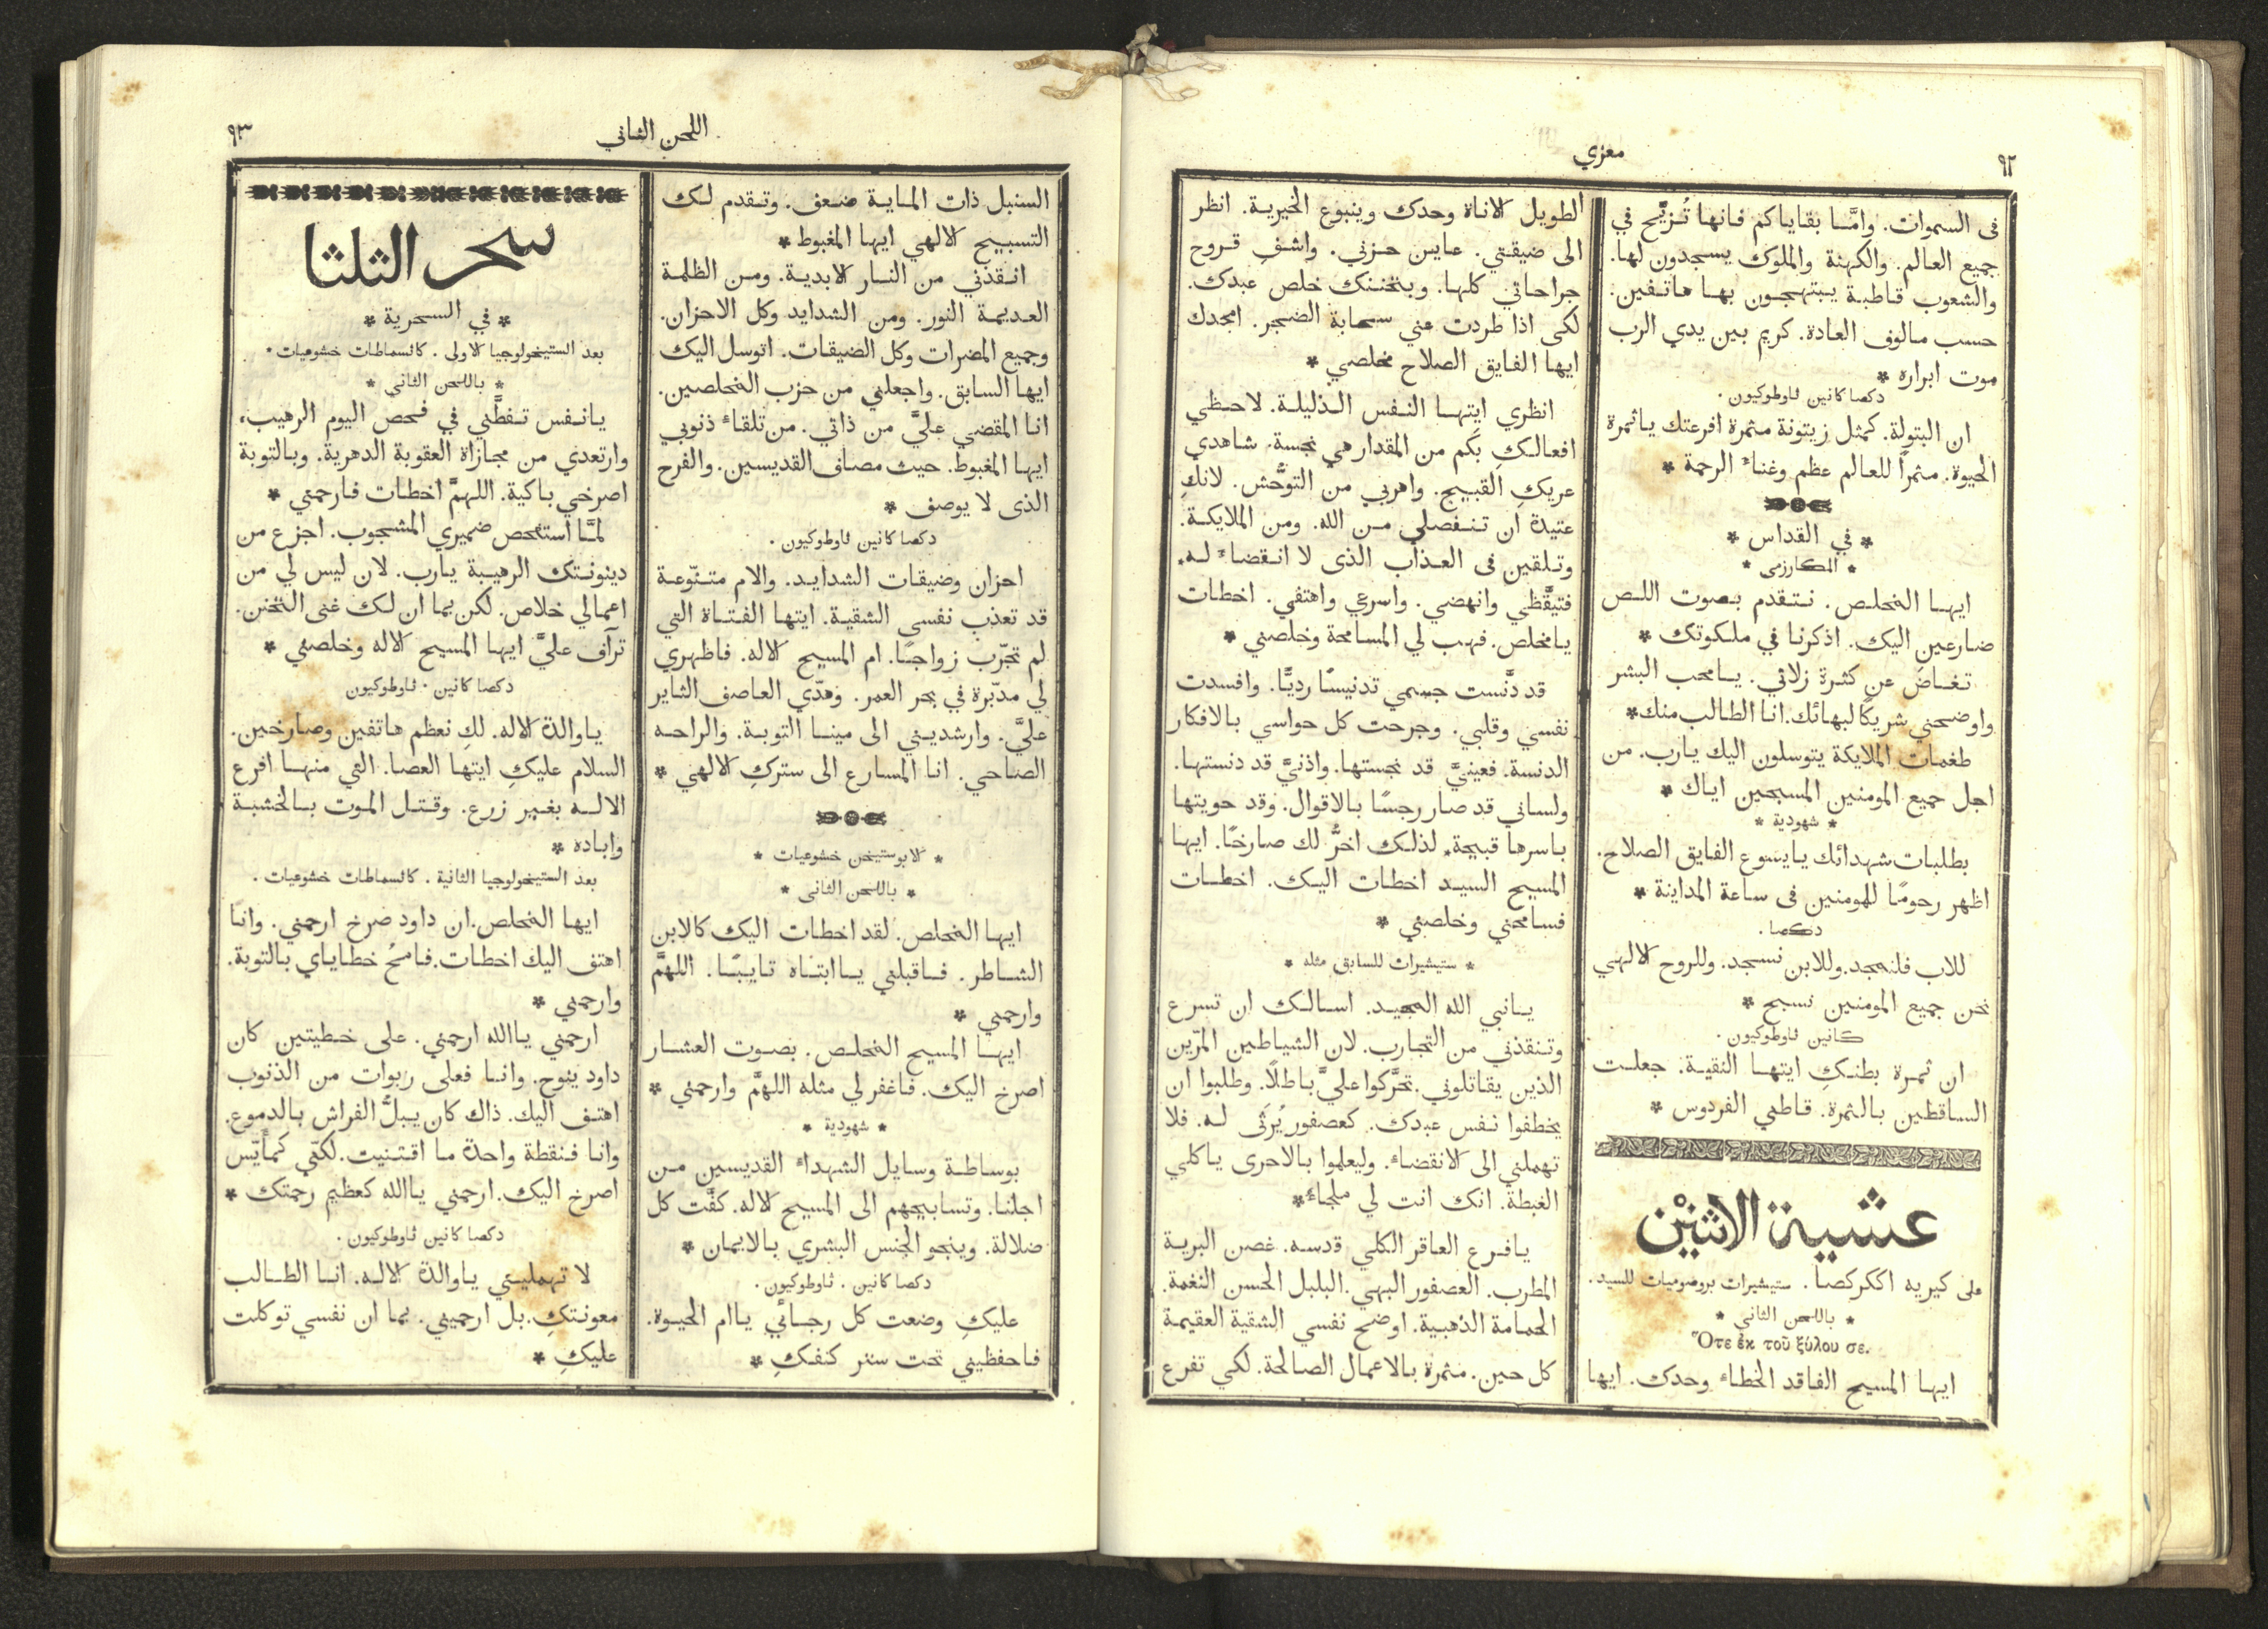 ٩٢
معزي
في السموات. وامَّا بقاياكم فانها تُزيَّح في
جميع العالم. والكهنة والملوك يسجدون لها.
والشعوب قاطبة يبتهجون بها هاتفين.
حسب مالوف العادة. كريم بين يدي الرب
موت ابراره *
دكصا كانين ثاوطوكيون.
ان البتولة. كمثل زيتونة مثمرة افرعتك ياثمرة
الحيوة. مثمراً للعالم عظم وغناء الرحمة *
* في القداس *
* المكارزمى *
ايها المخلص. نتقدم بصوت اللص
ضارعين اليك. اذكرنا في ملكوتك *
تغاض عن كثرة زلاتي. يامحب البشر
واوضحني شريكًا لبهائك. انا الطالب منك *
طغمات الملايكة يتوسلون اليك يارب. من
اجل جميع المومنين المسبحين اياك *
* شهودية *
بطلبات شهدائك يايسوع الفايق الصلاح.
اظهر رحومًا للمومنين فى ساعة المداينة *
دكصا.
للاب فلنمجد. وللابن نسجد. وللروح الالهي
نحن جميع المومنين نسبح *
كانين ثاوطوكيون.
ان ثمرة بطنكِ ايتها النقية. جعلت
الساقطين بالثمرة. قاطني الفردوس *
عشية الاثنيْن
على كيريه اككركصا. ستيشيرات بروصوميات للسيد.
* باللحن الثاني *
Ὅτε ἐκ τοῦ ξύλου σε.
ايها المسيح الفاقد الخطاء وحدك. ايها
الطويل الاناة وحدك وينبوع الخيرية. انظر
الى ضيقتي. عاين حزني. واشفِ قروح
جراحاتي كلها. وبتحننك خلص عبدك.
لكى اذا طردت عني سحابة الضجر. امجدك
ايها الفايق الصلاح مخلصي *
انظري ايتها النفس الذليلة. لاحظي
افعالكِ بَكم من المقدار هي نجسة. شاهدي
عريكِ القبيح. واهربي من التوحُّش. لانكِ
عتيدة ان تنفصلي من الله. ومن الملايكة.
وتلقين فى العذاب الذى لا انقضاء له.
فتيقَّظي وانهضي. واسرعي واهتفي. اخطات
يامخلص. فهب لي المسامحة وخلصني *
قد دنَّست جسمي تدنيسًا رديًّا. وافسدت
نفسي وقلبي. وجرحت كل حواسي بالافكار
الدنسة. فعينيَّ قد نجستها. واذنيَّ قد دنستها.
ولساني قد صار رجسًا بالاقوال. وقد حويتها
باسرها قبيحة. لذلك اخرُّ لك صارخًا. ايها
المسيح السيد اخطات اليك. اخطات
فسامحني وخلصني *
* ستيشيرات للسابق مثله *
يانبي الله المجيد. اسالك ان تسرع
وتنقذني من التجارب. لان الشياطين المرّين
الذين يقاتلوني. تحرَّكوا عليَّ باطلًا. وطلبوا ان
يخطفوا نفس عبدك. كعصفور يُرثى له. فلا
تهملني الى الانقضاء. وليعلموا بالاحرى ياكلي
الغبطة. انك انت لي ملجاء *
يافرع العاقر الكلي قدسه. غصن البرية
المطرب. العصفور البهي. البلبل الحسن النغمة.
الحمامة الذهبية. اوضح نفسي الشقية العقيمة
كل حين. مثمرة بالاعمال الصالحة. لكي تفرع
اللحن الثاني
٩٣
السنبل ذات الماية ضعف. وتقدم لك
التسبيح الالهي ايها المغبوط *
انقذني من النار الابدية. ومن الظلمة
العديمة النور. ومن الشدايد وكل الاحزان.
وجميع المضرات وكل الضيقات. اتوسل اليك
ايها السابق. واجعلني من حزب المخلصين.
انا المقضي عليَّ من ذاتي. من تلقاء ذنوبي
ايها المغبوط. حيث مصاف القديسين. والفرح
الذى لا يوصف *
دكصا كانين ثاوطوكيون.
احزان وضيقات الشدايد. والام متنّوعة
قد تعذب نفسي الشقية. ايتها الفتاة التي
لم تجّرب زواجًا. ام المسيح الاله. فاظهري
لي مدبّرة في بحر العمر. وهدّي العاصف الثاير
عليَّ. وارشديني الى مينا التوبة. والراحه
الصاحي. انا المسارع الى ستركِ الالهي *
* الابوستيخن خشوعيات *
* باللحن الثانى *
ايها المخلص. لقد اخطات اليك كالابن
الشاطر. فاقبلني ياابتاه تايبًا. اللهمَّ
وارحمني *
ايها المسيح المخلص. بصوت العشار
اصرخ اليك. فاغفر لي مثله اللهمَّ وارحمني *
* شهودية *
بوساطة وسايل الشهداء القديسين من
اجلنا. وتسابيحهم الى المسيح الاله. كفَّت كل
ضلالة. وينجو الجنس البشري بالايمان *
دكصا كانين. ثاوطوكيون.
عليكِ وضعت كل رجائي ياام الحيوة.
فاحفظيني تحت ستر كنفكِ *
سحر الثلثا
* في السحرية *
بعد الستيخولوجيا الاولى. كاثسماطات خشوعيات.
* باللحن الثاني *
يانفس تفطَّني في فحص اليوم الرهيب،
وارتعدي من مجازاة العقوبة الدهرية. وبالتوبة
اصرخي باكية. اللهمَّ اخطات فارحمني *
لمَّا استفحص ضميري المشجوب. اجزع من
دينونتك الرهيبة يارب. لان ليس لي من
اعمالي خلاص. لكن بما ان لك غنى التحنن.
ترآف عليَّ ايها المسيح الاله وخلصني *
دكصا كانين. ثاوطوكيون
ياوالدة الاله. لكِ نعظم هاتفين وصارخين.
السلام عليكِ ايتها العصا. التي منها افرع
الاله بغير زرع. وقتل الموت بالخشبة
واباده *
بعد الستيخولوجيا الثانية. كاثسماطات خشوعيات.
ايها المخلص. ان داود صرخ ارحمني. وانا
اهتف اليك اخطات. فامحُ خطاياي بالتوبة.
وارحمني *
ارحمني ياالله ارحمني. على خطيتين كان
داود ينوح. وانا فعلى ربوات من الذنوب
اهتف اليك. ذاك كان يبلُّ الفراش بالدموع.
وانا فنقطة واحدة ما اقتنيت. لكنّي كمأيّس
اصرخ اليك. ارحمني ياالله كعظيم رحمتك *
دكصا كانين ثاوطوكيون.
لا تهمليني ياوالدة الاله. انا الطالب
معونتكِ. بل ارحميني. بما ان نفسي توكلت
عليكِ *